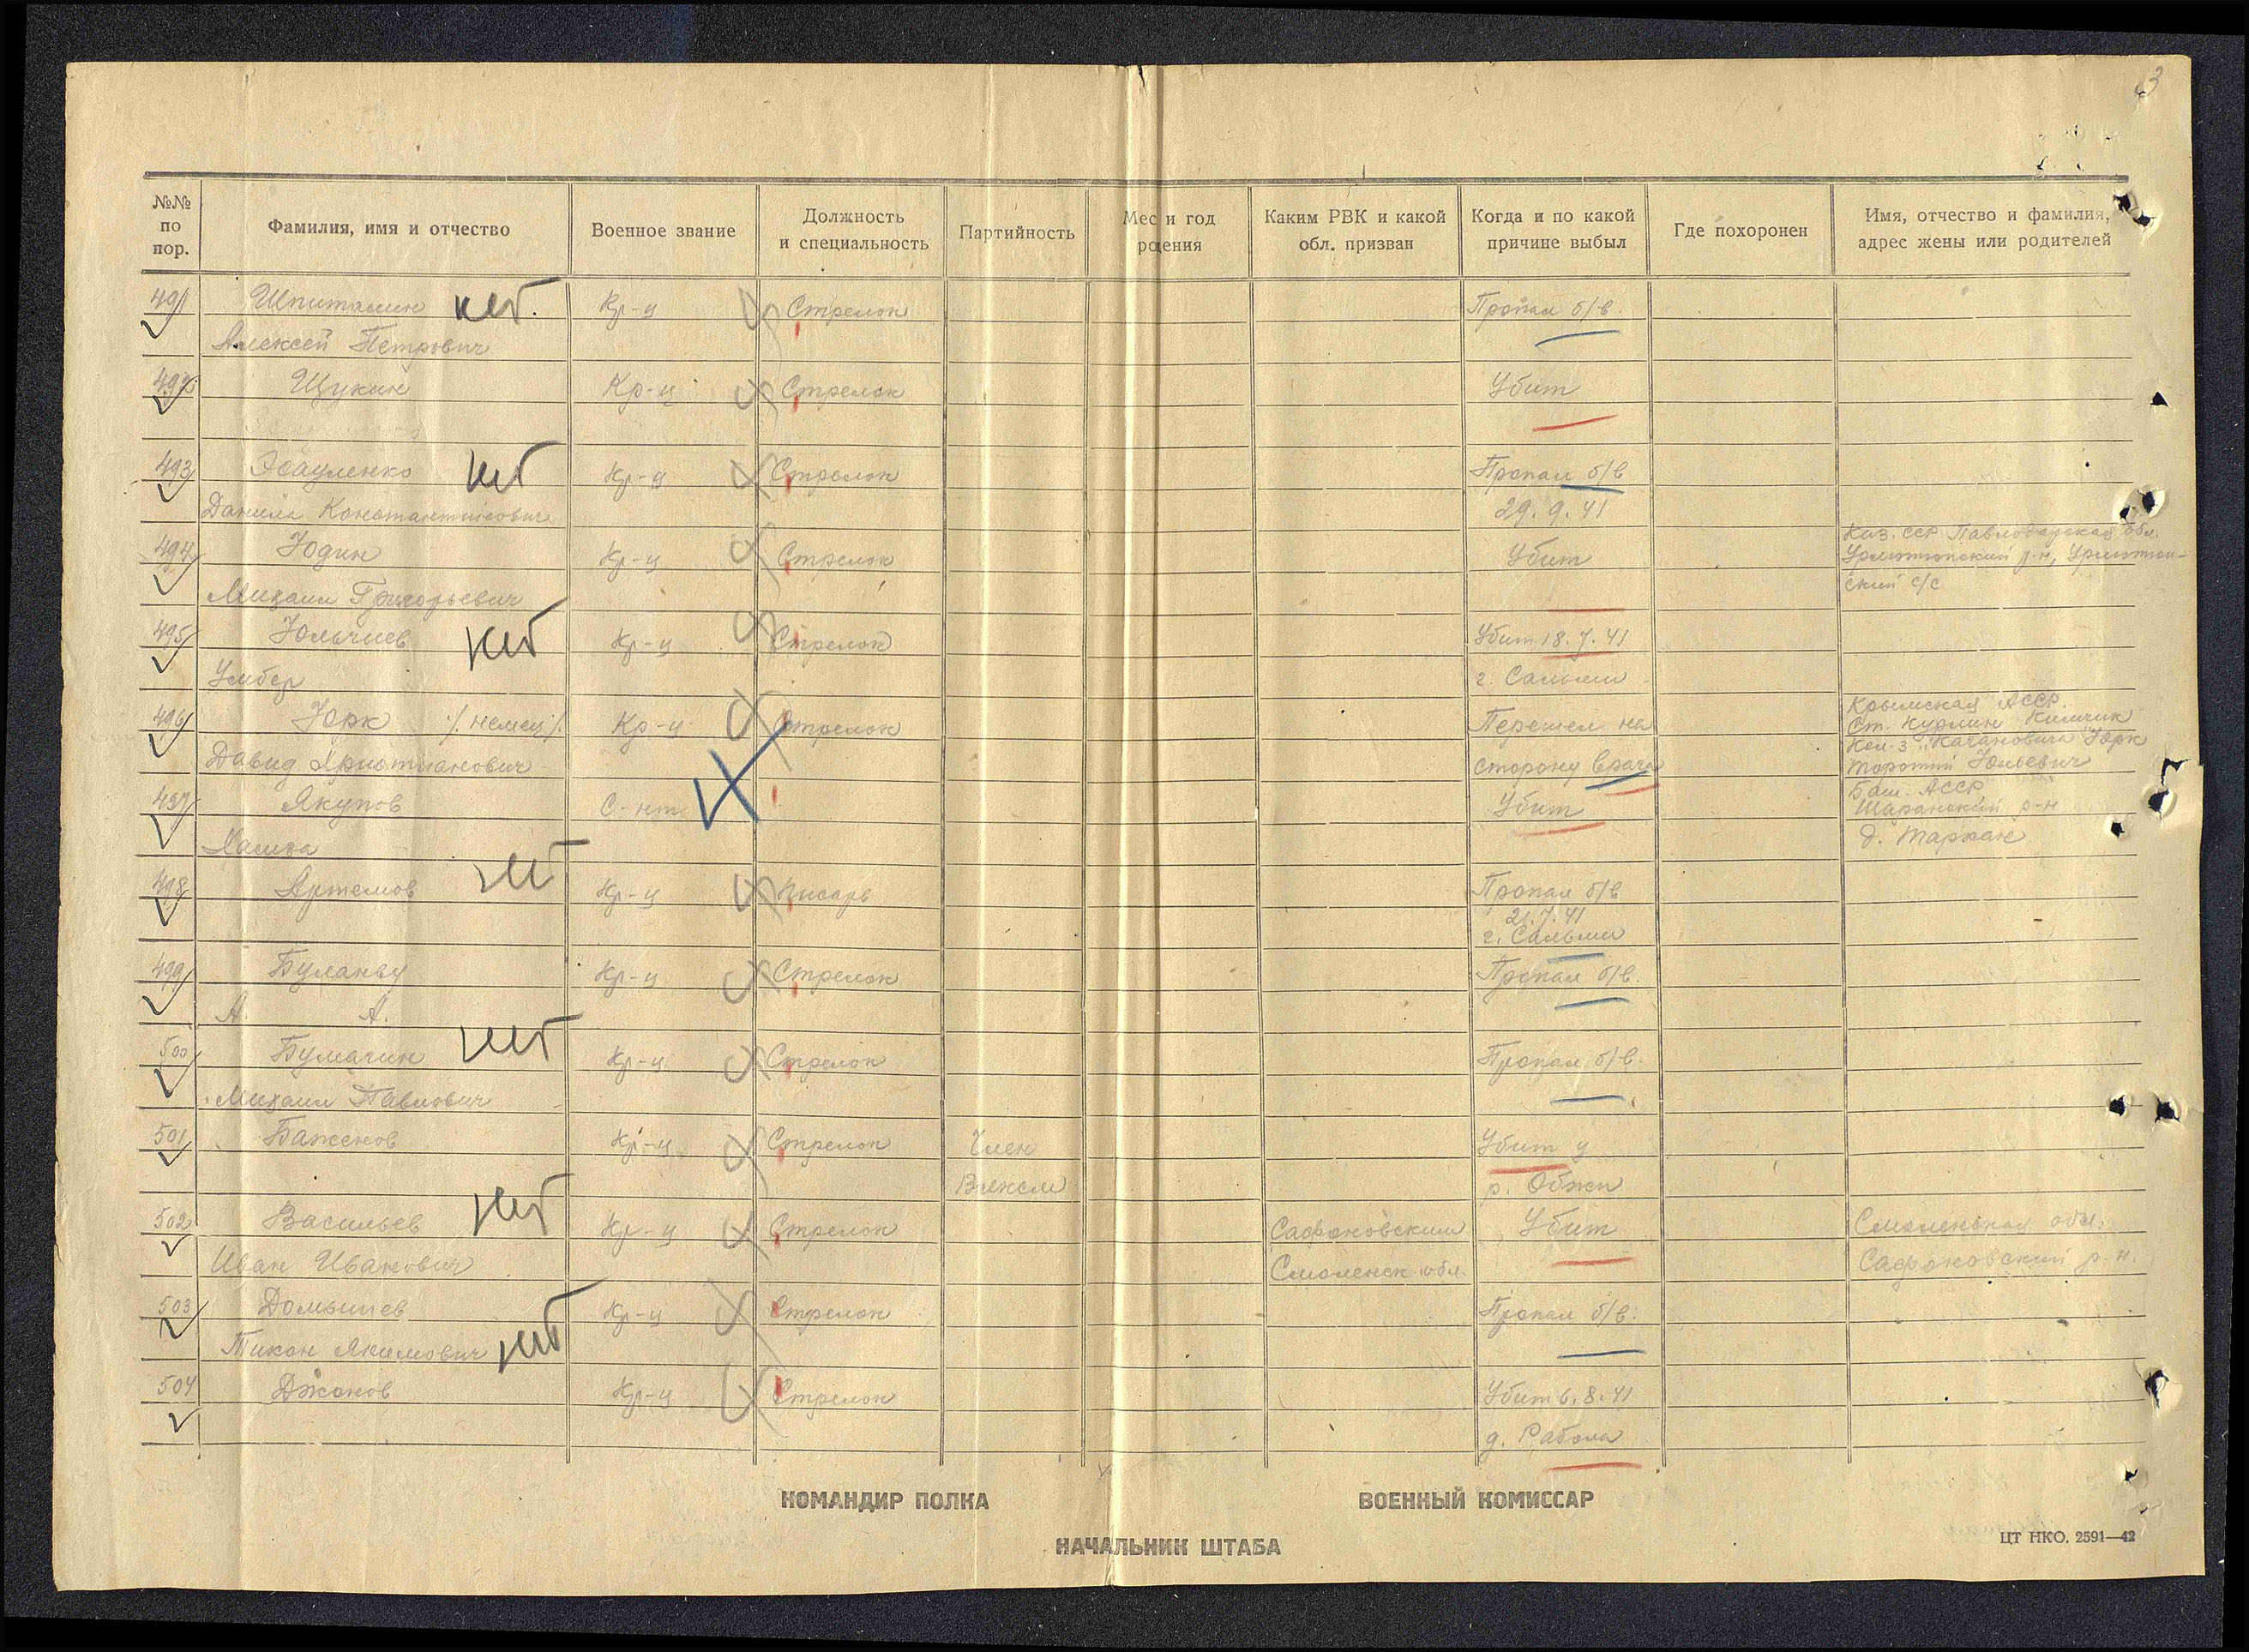 3
№№ по пор.
Фамилия, имя и отчество
Военное звание
Должность и специальность
Партийность
Мес и год рдения
Каким РВК и какой обл. призван
Когда и по какой причине выбыл
Где похоронен
Имя, отчество и фамилия, адрес жены или родителей
491 Шпиталин Кр-ц Стрелок Пропал б/в.
Алексей Петрович
492 Щукин Кр-ц Стрелок Убит
493 Эсауленко Кр-ц Стрелок Пропал б/в
Данила Константинович 29.9.41
494 Юдин Кр-ц Стрелок Убит Каз. ССР Павлодарская обл.
Урлютюпский р-н, Урлютюп-
Михаил Григорьевич ский с/с
495 Юльчиев Кр-ц Стрелок Убит 18.7.41
Умбер г. Сальми
496 Юрк /немец/ Кр-ц Стрелок Перешел на Крымская АССР.
Ст. Курман Кемчик
Давид Христианович сторону врага Кол-з "Кагановича" Юрк
Юльевич
497 Якупов С-нт Убит Баш. АССР
Шаранский р-н
Хамза д. Таржан
498 Артемов Кр-ц Писарь Пропал б/в
21.7.41
г. Сальми
499 Кр-ц Стрелок Пропал б/в.
А. А.
500 Бумагин Кр-ц Стрелок Пропал б/в.
Михаил Павлович
501 Баженов Кр-ц Стрелок Член Убит у
Влксм р. Обжи
502 Васильев Кр-ц Стрелок Сафоновским Убит Смоленская обл.
Иван Иванович Смоленск. обл. Сафоновский р-н.
503 Домышев Кр-ц Стрелок Пропал б/в.
Тихон Акимович
504 Джонов Кр-ц Стрелок Убит 6.8.41
д. Рабола
КОМАНДИР ПОЛКА
ВОЕННЫЙ КОМИССАР
НАЧАЛЬНИК ШТАБА
ЦТ НКО. 2591—42